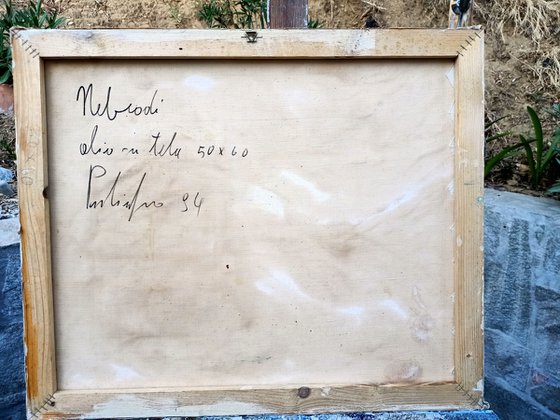 Nebrodi
olio su tela 50x60
94